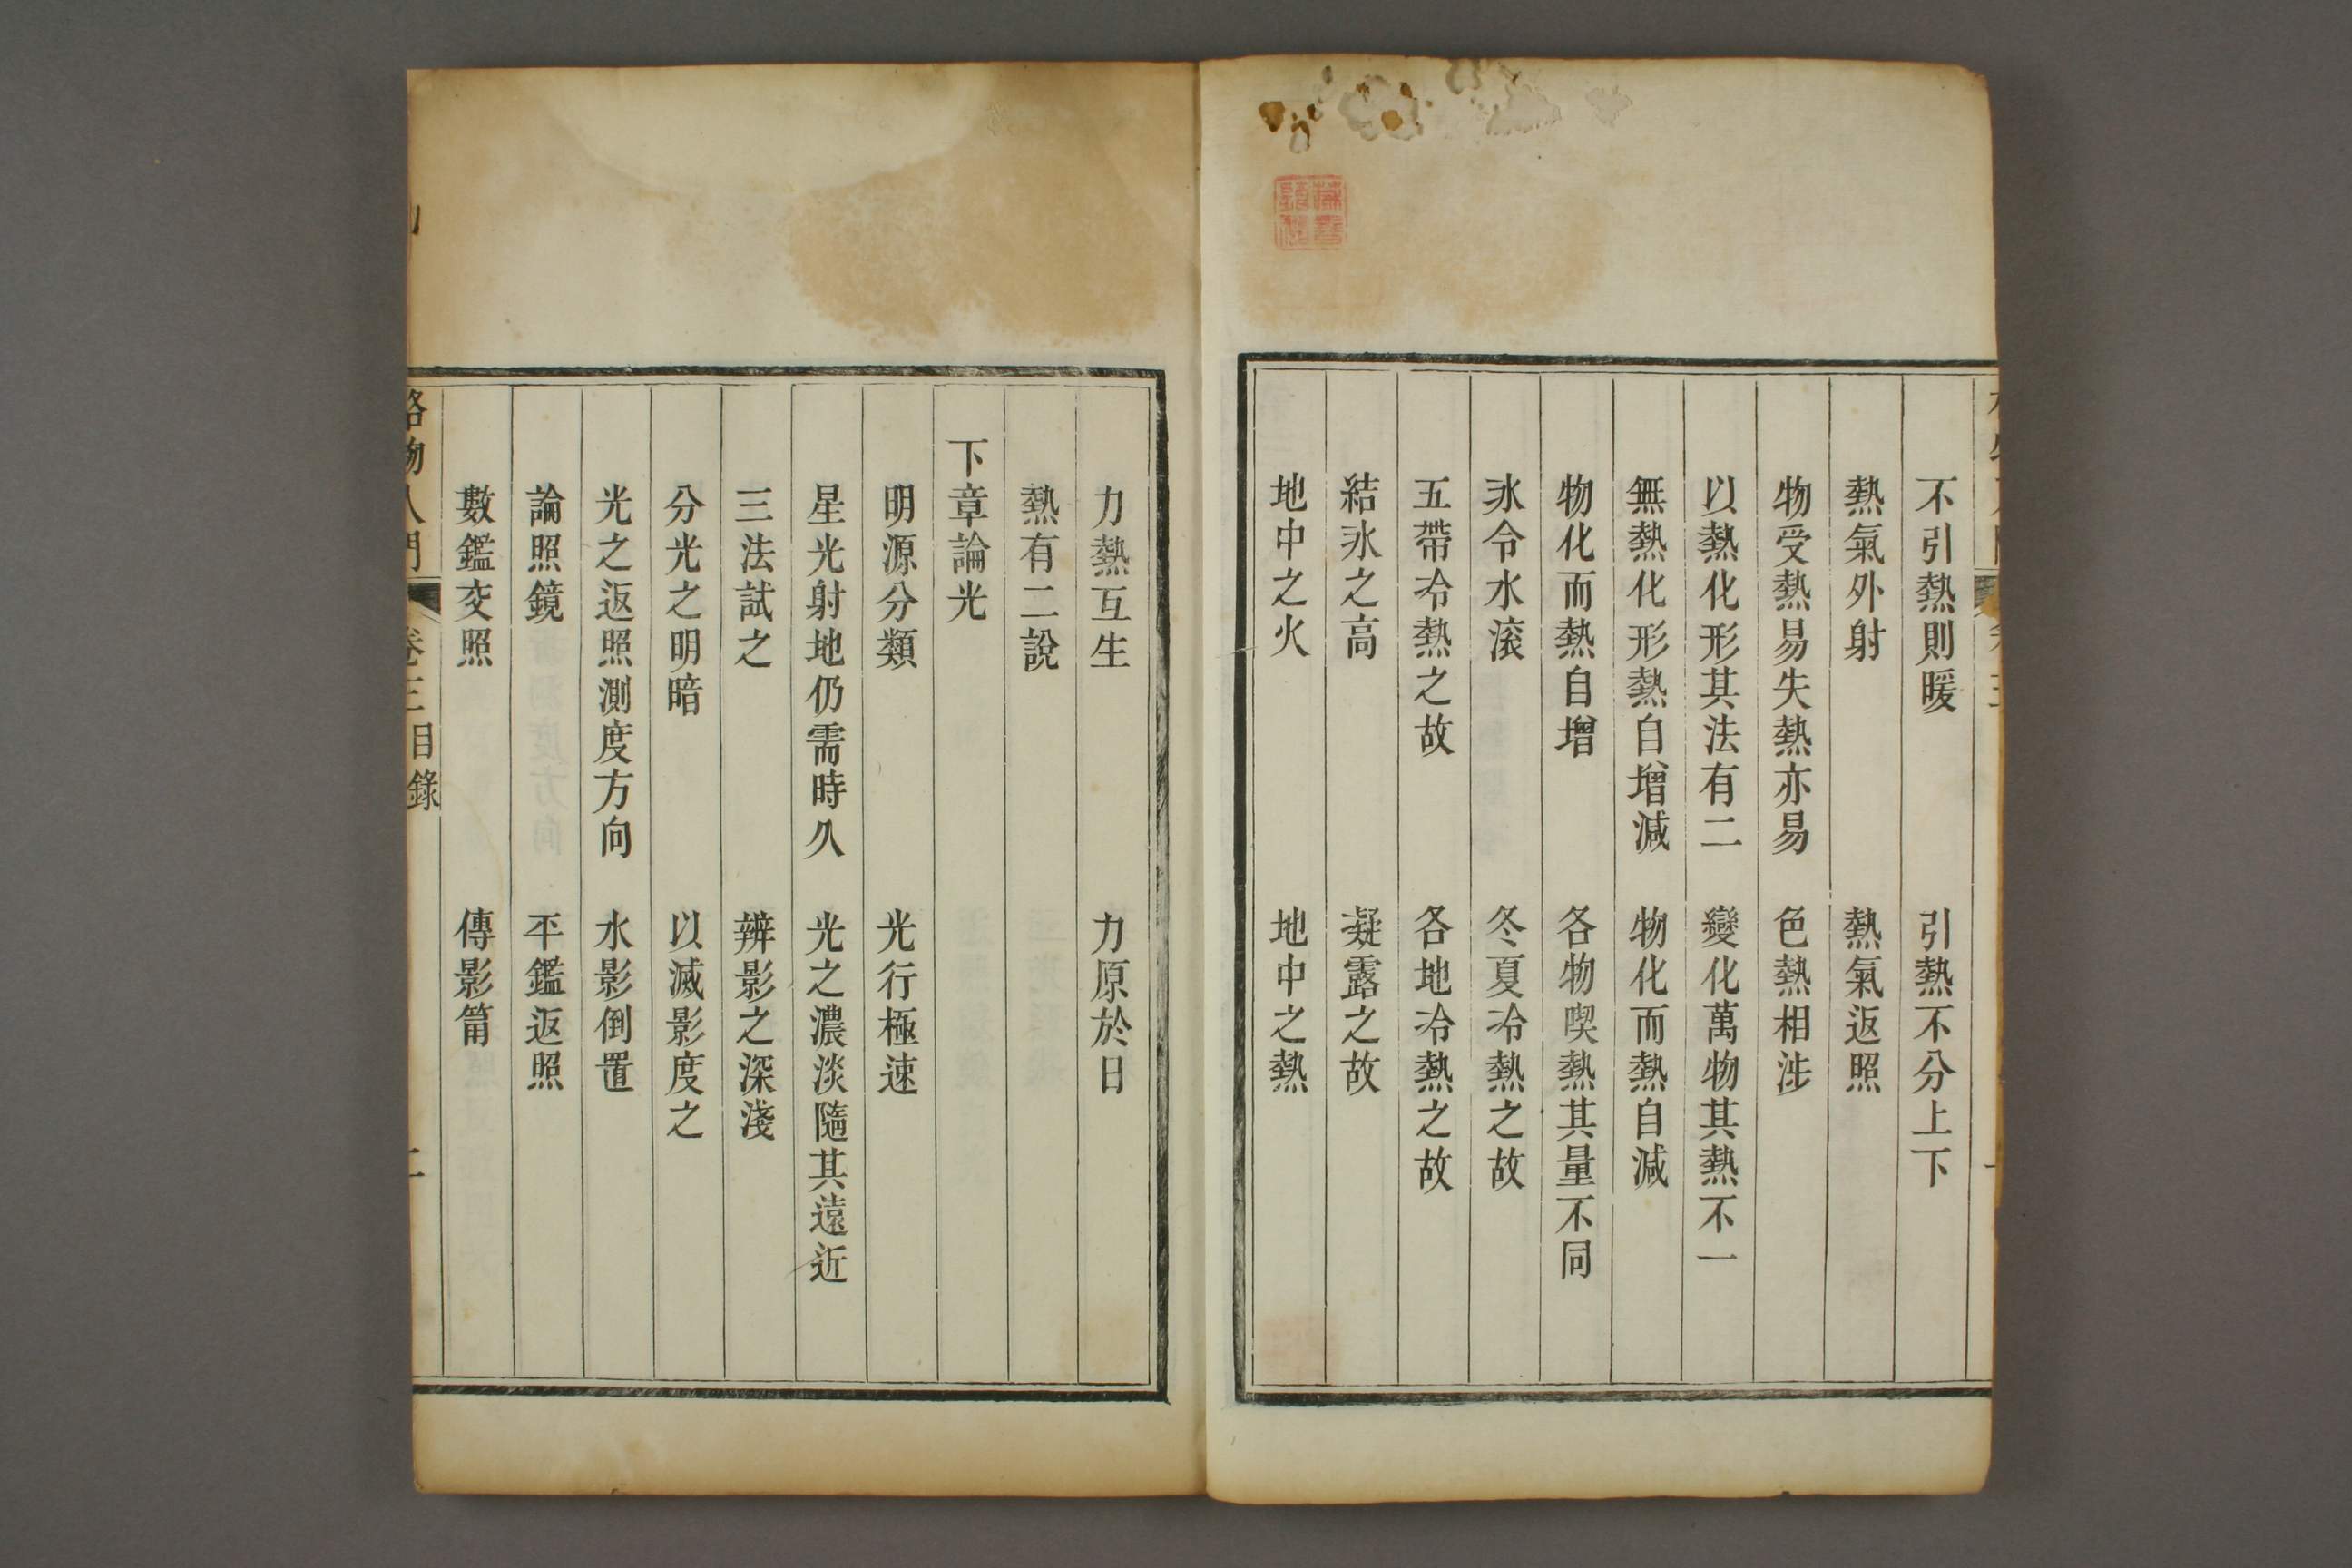 不引熱則暖　引熱不分上下
熱氣外射　熱氣返照
物受熱易失熱亦易　色熱相涉
以熱化形其法有二　變化萬物其熱不一
無熱化形熱自增減　物化而熱自減
物化而熱自增　各物喫熱其量不同
氷令水滚　冬夏冷熱之故
五帶冷熱之故　各地冷熱之故
結氷之高　凝露之故
地中之火　地中之熱
力熱互生　力原於日
熱有二說
下章論光
明源分類　光行極速
星光射地仍需時久　光之濃淡隨其遠近
三法試之　辨影之深淺
分光之明暗　以滅影度之
光之返照測度方向　水影倒置
論照鏡　平鑑返照
數鑑交照　傳影筩
格物入門　卷三目錄　二